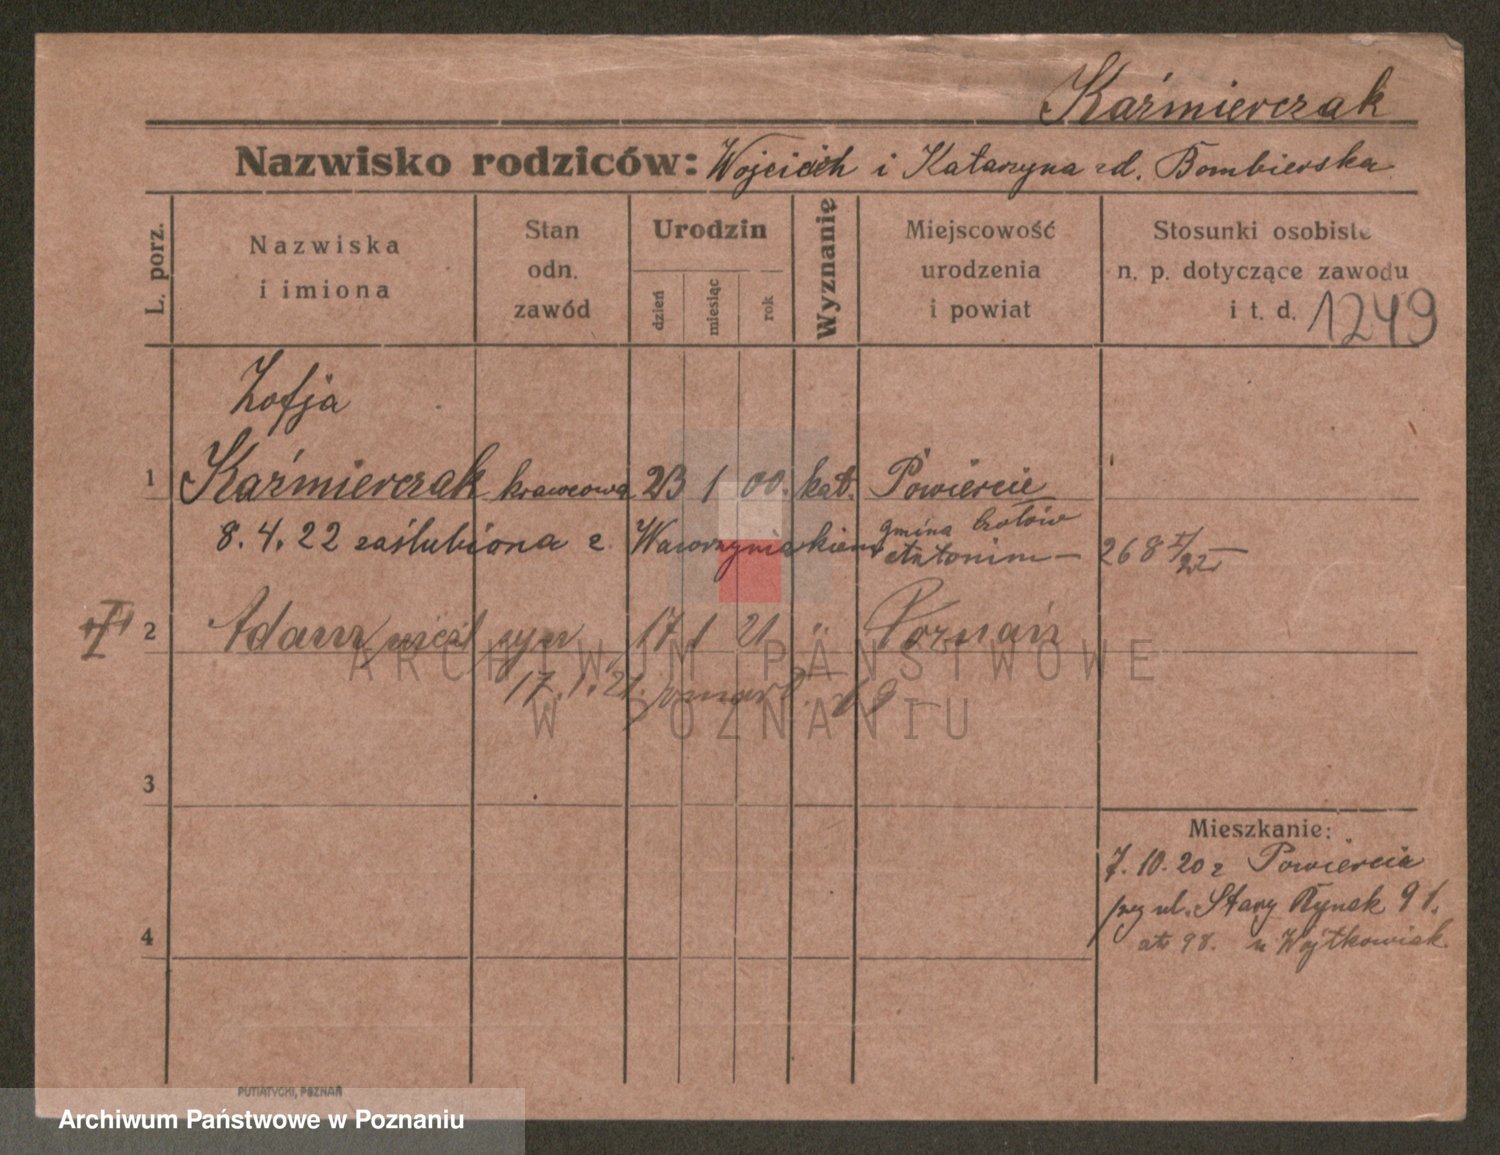 Kaźmierczak
Nazwisko rodziców: Wojciech i Katarzyna zd. Bombierska
L. porz.
Nazwiska
i imiona
Stan
odn.
zawód
Urodzin
dzień
miesiąc
rok
Wyznanię
Miejscowość
urodzenia
i powiat
Stosunki osobiste
n. p. dotyczące zawodu
i t. d. 1249
Zofja
1 Kaźmierczak krawcowa 23 1 00. kat. Powiercie
8.4.22 zaślubiona z Wawrzyniakiem
gmina
Antonim — 268 I/22
2 Adam nieśl syn 17 1 21 " Poznań
17.1.21 zmarł
3
4
Mieszkanie:
7.10.20 z Powiercia
przy ul. Stary Rynek 91.
98. u Wojtkowiak
PUTIATYCKI, POZNAŃ
ARCHIWUM PAŃSTWOWE
W POZNANIU
Archiwum Państwowe w Poznaniu